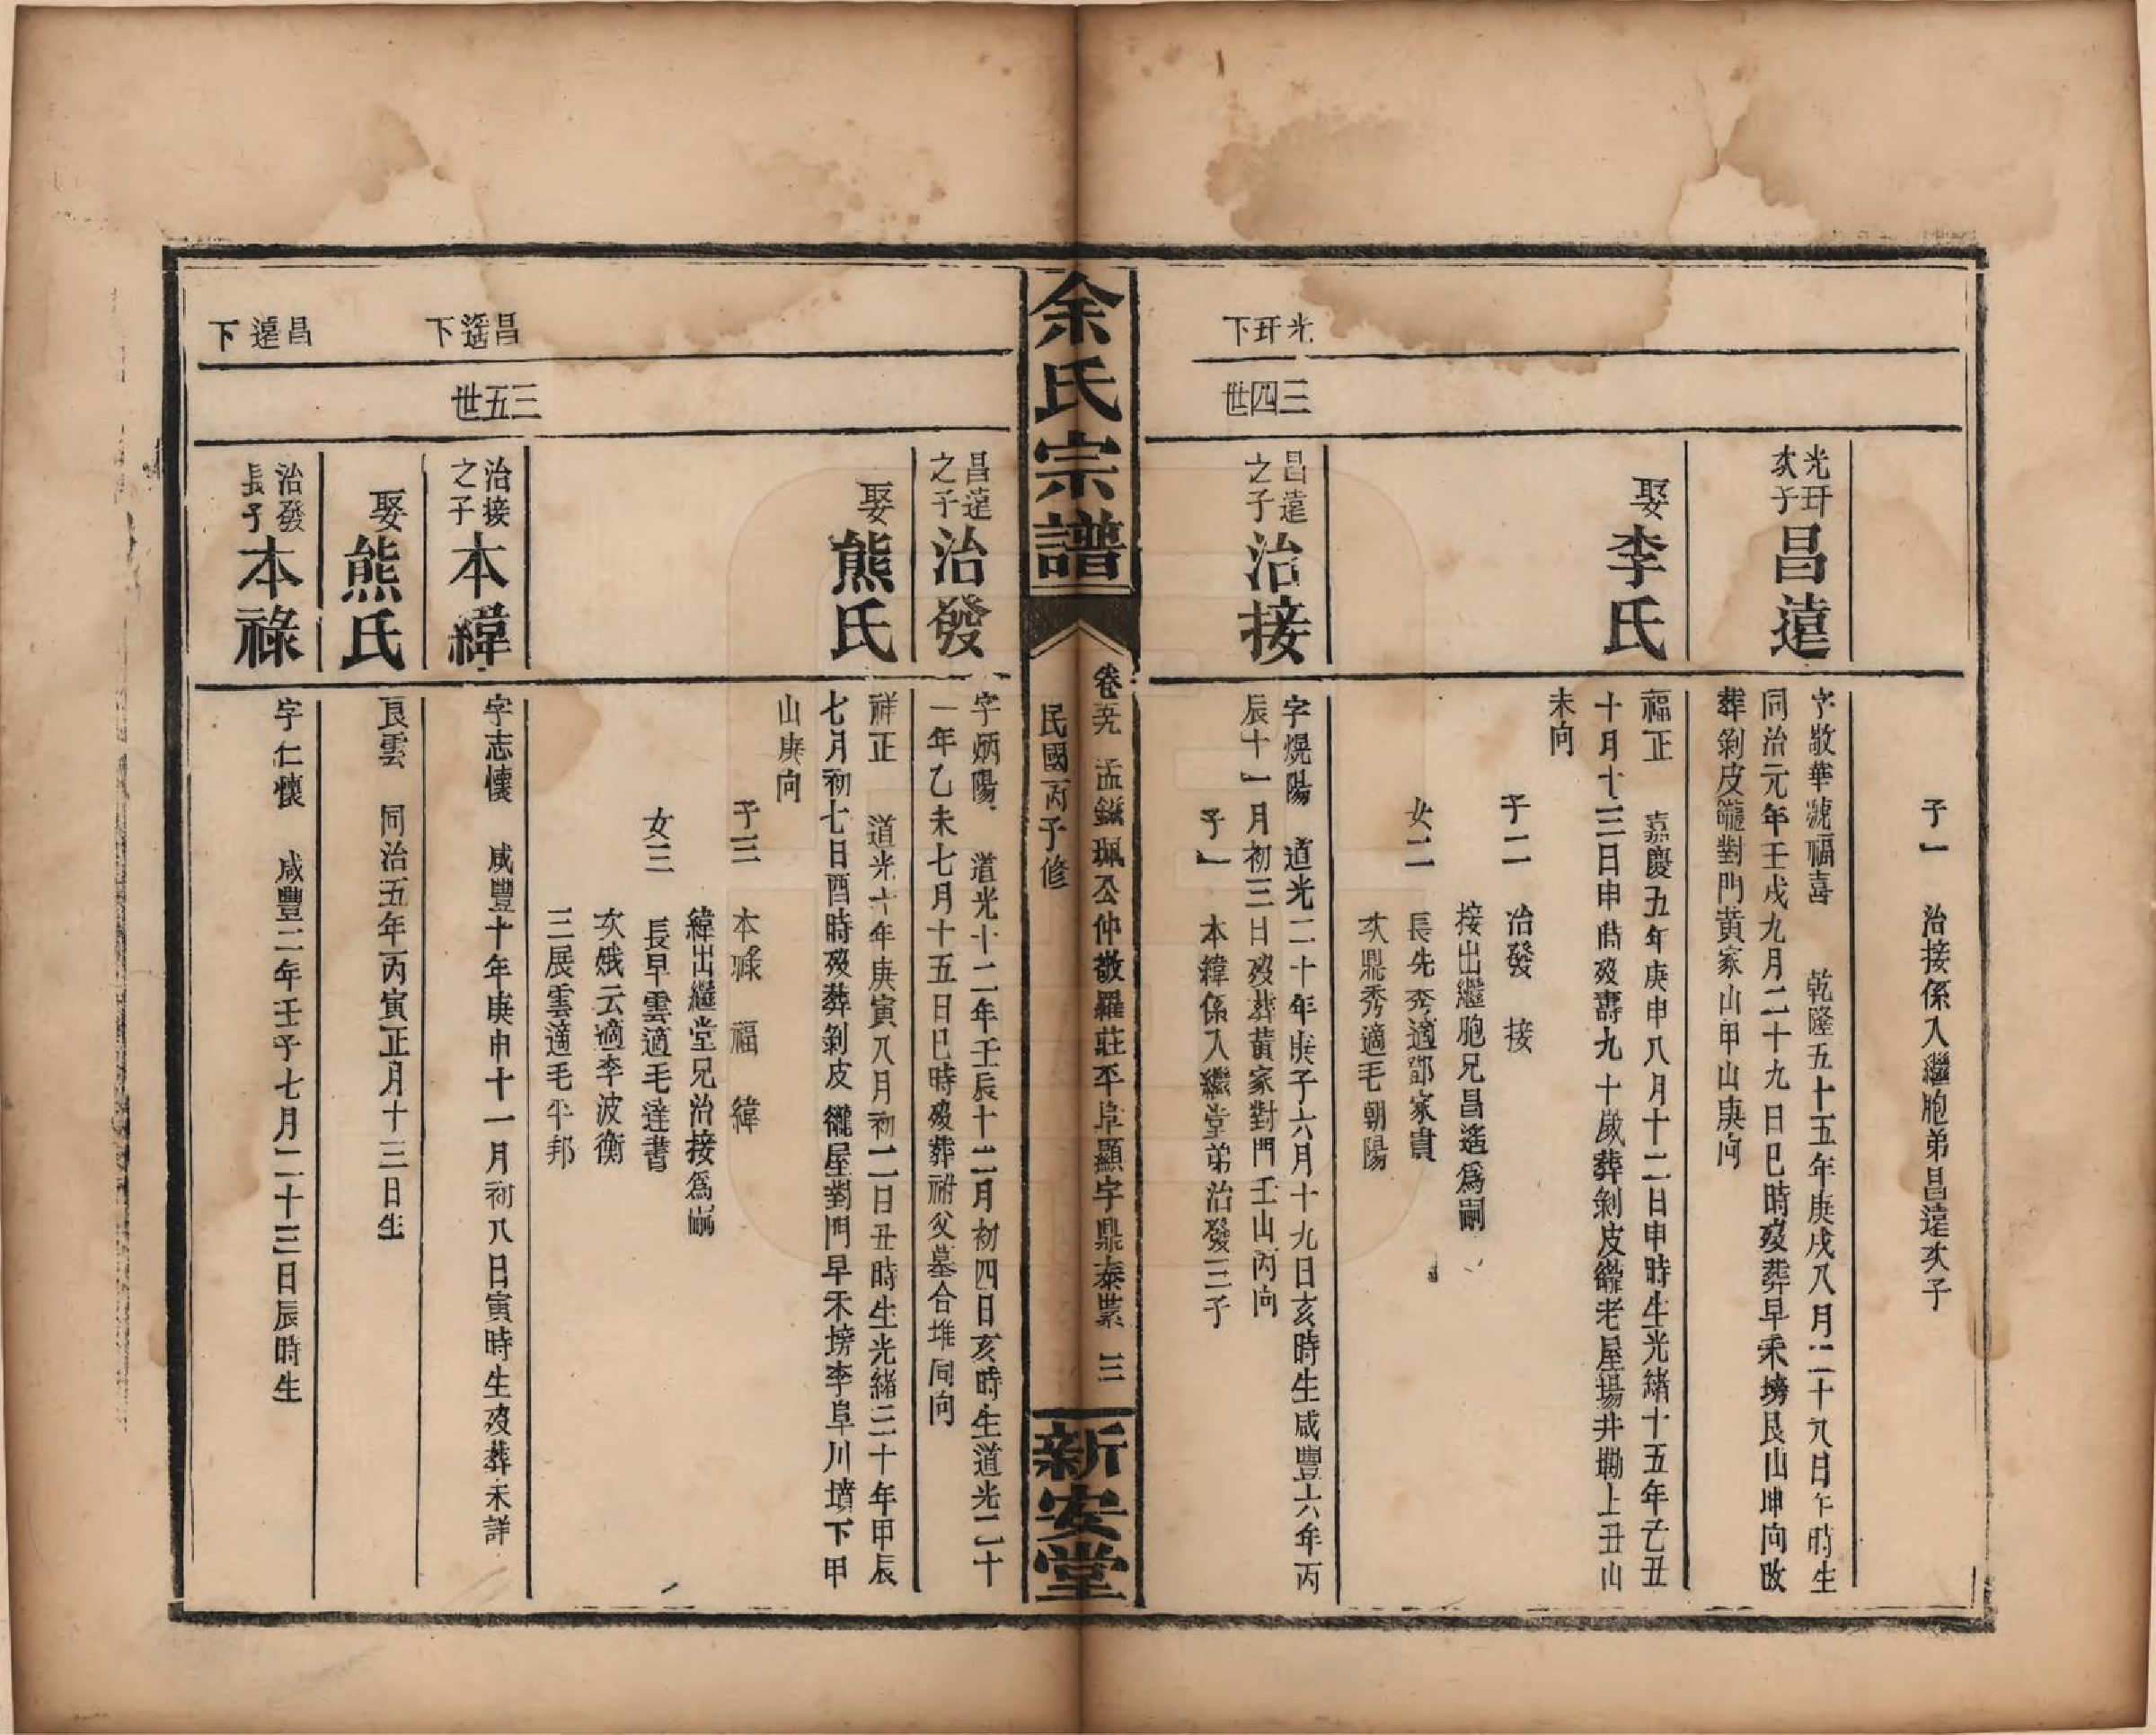 光玕下
三四世
子一　治接係入繼胞弟昌遠次子
光玕次子
昌遠
字敬華號福喜　乾隆五十五年庚戌八月二十八日午時生
同治元年壬戌九月二十九日巳時歿葬早禾塝艮山坤向改
葬剝皮對門黃家山甲山庚向
娶李氏
福正　嘉慶五年庚申八月十二日申時生光緒十五年乙丑
十月十三日申時歿壽九十歲葬剝皮老屋場井墈上丑山
未向
子二　治發　接
接出繼胞兄昌遙爲嗣
女二　長先秀適鄧家貴
次鼎秀適毛朝陽
昌遠之子
治接
字焜陽　道光二十年庚子六月十九日亥時生咸豐六年丙
辰十一月初三日歿葬黃家對門壬山丙向
子一　本緯係入繼堂弟治發三子
余氏宗譜
卷　孟鎡珮公仲敬羅莊平阜顯宇鼎泰業　三
民國丙子修
新安堂
昌遙下
昌遠下
三五世
昌遠之子
治發
字炳陽　道光十二年壬辰十二月初四日亥時生道光二十
一年乙未七月十五日巳時歿葬祔父墓合堆同向
娶熊氏
祥正　道光十年庚寅八月初二日丑時生光緒三十年甲辰
七月初七日酉時歿葬剝皮屋對門早禾塝李阜川墳下甲
山庚向
子三　本祿　福　緯
緯出繼堂兄治接爲嗣
女三　長早雲適毛達書
次娥云適李波衡
三展雲適毛平邦
治接之子
本緯
字志懷　咸豐十年庚申十一月初八日寅時生歿葬未詳
娶熊氏
良雲　同治五年丙寅正月十三日生
治發長子
本祿
字仁懷　咸豐二年壬子七月二十三日辰時生